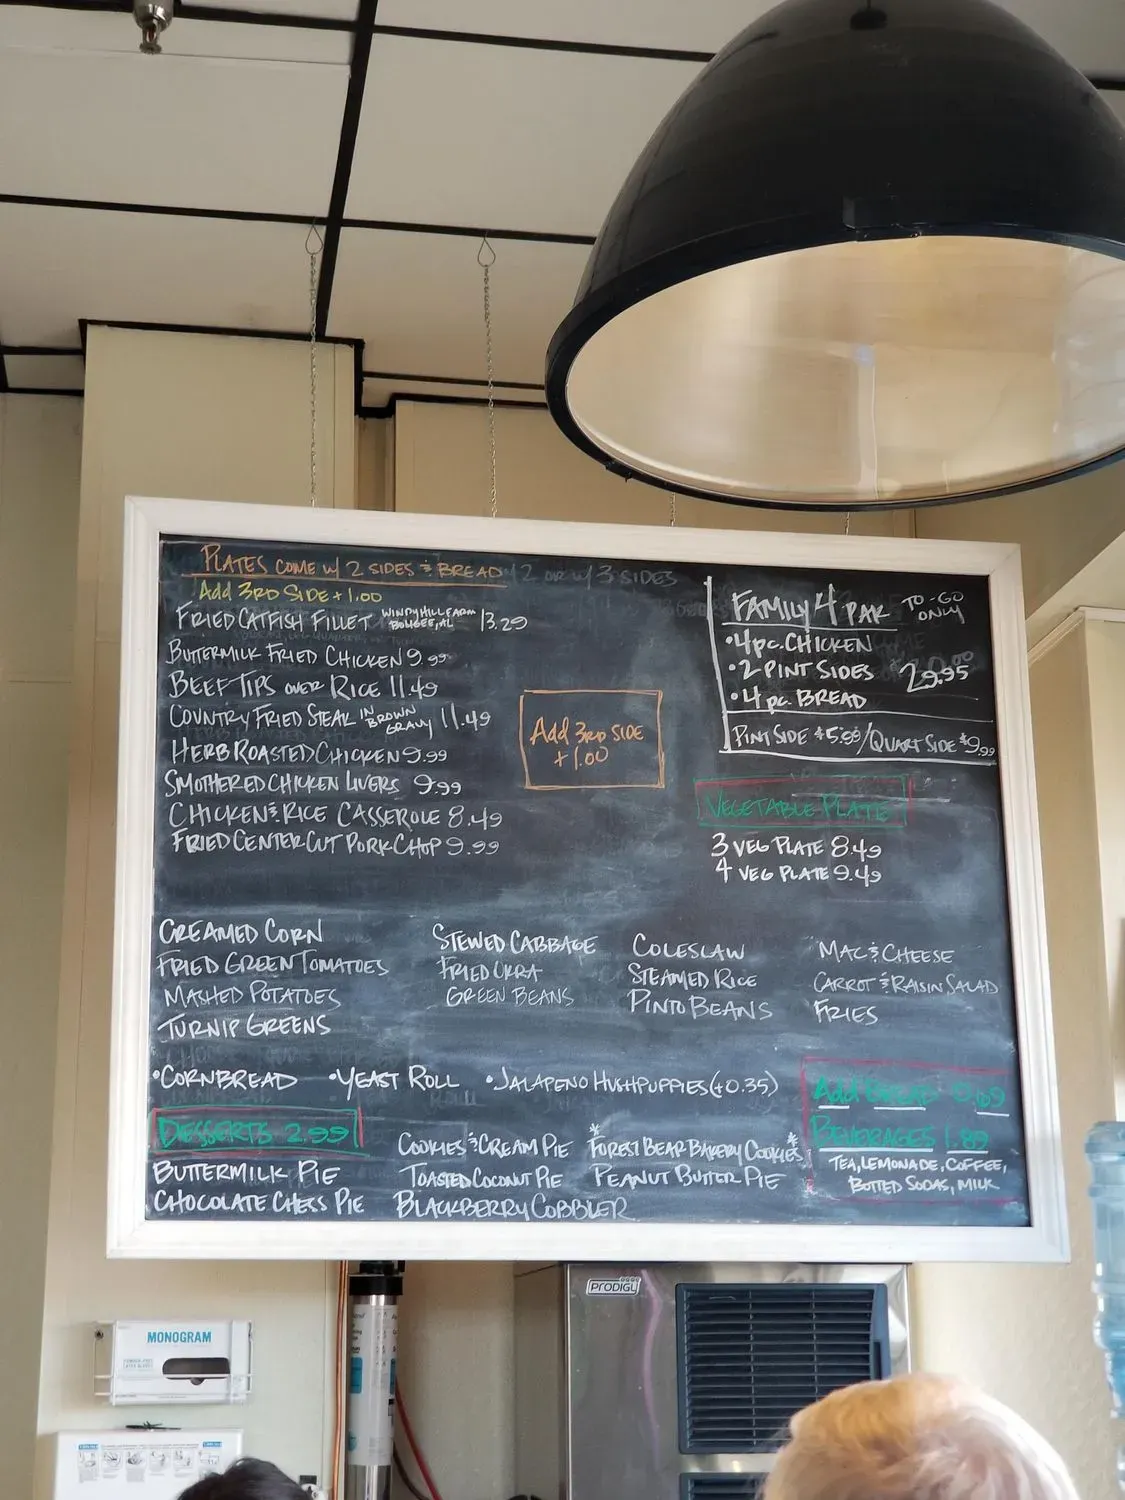 PLATES COME W/ 2 SIDES & BREAD
2 OR W/ 3 SIDES
Add 3RD SIDE + 1.00
FRIED CATFISH FILLET WINDY HILL FARM 13.29
BUTTERMILK FRIED CHICKEN 9.99
BEEF TIPS OVER RICE 11.49
COUNTRY FRIED STEAK IN BROWN GRAVY 11.49
HERB ROASTED CHICKEN 9.99
SMOTHERED CHICKEN LIVERS 9.99
CHICKEN & RICE CASSEROLE 8.49
FRIED CENTER CUT PORK CHOP 9.99
Add 3RD SIDE
+ 1.00
FAMILY 4 PAK TO-GO ONLY
•4pc. CHICKEN
•2 PINT SIDES 29.95
•4 pc. BREAD
PINT SIDE $5.99/QUART SIDE $9.99
VEGETABLE PLATE
3 VEG PLATE 8.49
4 VEG PLATE 9.49
CREAMED CORN
FRIED GREEN TOMATOES
MASHED POTATOES
TURNIP GREENS
STEWED CABBAGE
FRIED OKRA
GREEN BEANS
COLESLAW
STEAMED RICE
PINTO BEANS
MAC & CHEESE
CARROT & RAISIN SALAD
FRIES
•CORNBREAD •YEAST ROLL •JALAPENO HUSHPUPPIES (+0.35)
DESSERTS 2.99
BUTTERMILK PIE
CHOCOLATE CHESS PIE
COOKIES & CREAM PIE
TOASTED COCONUT PIE
BLACKBERRY COBBLER
*FOREST BEAR BAKERY COOKIES*
PEANUT BUTTER PIE
Add BREAD 0.69
BEVERAGES 1.89
TEA, LEMONADE, COFFEE,
BOTTED SODAS, MILK
PRODIGY
MONOGRAM